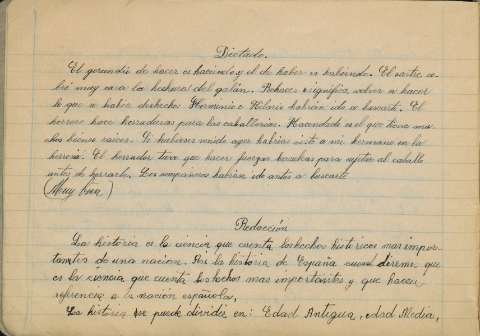 Dictado.
El gerundio de hacer es haciendo y el de haber es habiendo. El sastre co-
bró muy cara la hechura del gabán. Rehacer significa volver a hacer
lo que se había deshecho. Herminio e Hilario habrían ido a buscarte. El
herrero hace herraduras para las caballerías. Hacendado es el que tiene mu-
chos bienes raíces. Si hubieras venido ayer habrías visto a mi hermano en la
herrería. El herrador tuvo que hacer fuerzas hercúleas para sujetar al caballo
antes de herrarlo. Los compañeros habrían ido antes a buscarte.
(Muy bien)
Redacción
La historia es la ciencia que cuenta los hechos históricos mas impor-
tantes de una nación. Por la historia de España diremos que
es la ciencia que cuenta los hechos mas importantes y que hacen
referencia a la nación española,
La historia se puede dividir en: Edad Antigua, edad Media,